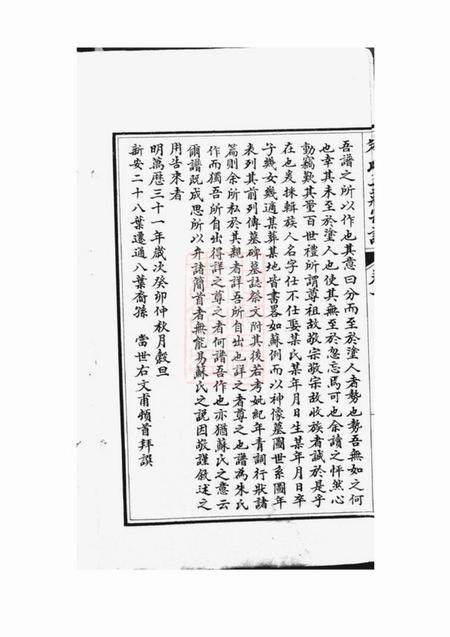 吾譜之所以作也其意曰分而至於塗人者勢也勢吾無如之何
也幸其未至於塗人也使其無至於忽忘焉可也余讀之怦然心
動竊歎其量百世禮所謂尊祖故敬宗敬宗故收族者誠於是乎
在也爰採輯族人名字仕不仕娶某氏某年月日生某年月日卒
子幾女幾適某葬某地皆書畧如蘇例而以神像墓圖世系圖年
表列其前列傳墓碑墓誌祭文附其後若考妣紀年青詞行狀諸
篇則余所私於其親者詳吾所自出也詳之者尊之也譜為朱氏
作而獨吾所自出得詳之尊之者何譜吾作也亦猶蘇氏之意云
爾譜既成思所以弁諸簡首者無能易蘇氏之說因敬謹叙述之
用告來者
明萬歷三十一年歲次癸卯仲秋月穀旦
新安二十八葉遷通八葉裔孫 當世右文甫頓首拜譔